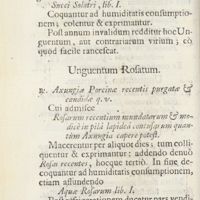 Succi Solatri, lib. I.
Coquantur ad humiditatis consumptio-
nem; colentur & exprimantur.
Post annum invalidum redditur hoc Un-
guentum, aut contrariarum virium; eò
quod facile rancescat.
Unguentum Rosatum.
℞. Axungiæ Porcinæ recentis purgatæ &
candidæ q. v.
Cui admisce
Rosarum recentium mundatarum & mo-
dicè in pilâ lapideâ contusarum quan-
tùm Axungia capere potest.
Macerentur per aliquot dies; tum colli-
quentur & exprimantur; addendo denuò
Rosas recentes, hocque tertiò. In fine de-
coquantur ad humiditatis consumptionem,
etiam affundendo
Aquæ Rosarum lib. I.